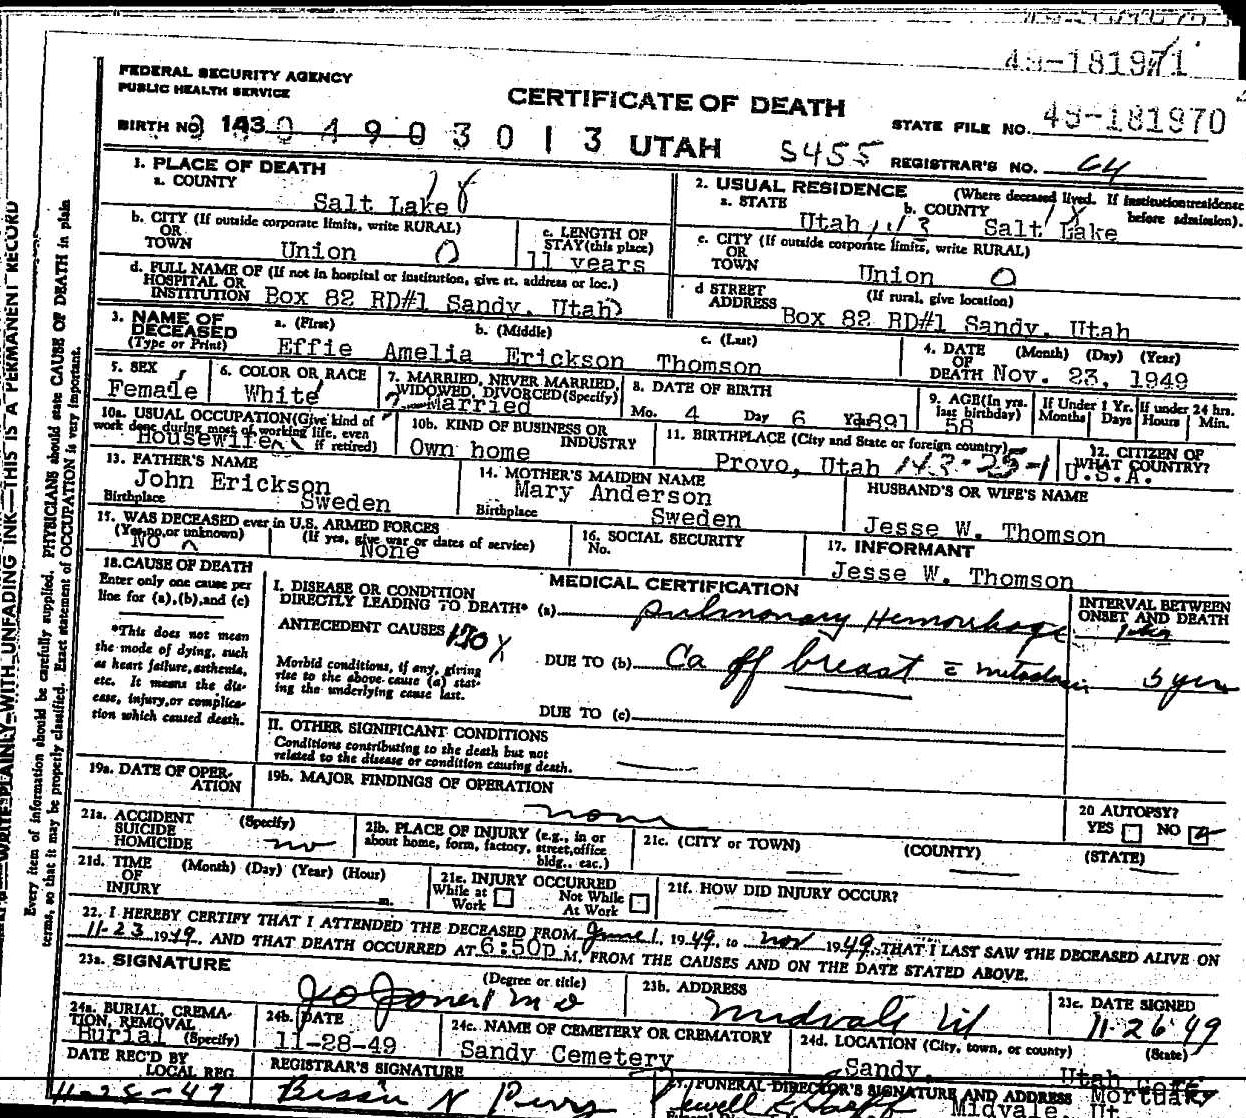 49-181971
FEDERAL SECURITY AGENCY
PUBLIC HEALTH SERVICE
CERTIFICATE OF DEATH
STATE FILE NO. 49-181970
BIRTH NO. 143 4903013 UTAH S455 REGISTRAR'S NO. 64
1. PLACE OF DEATH
a. COUNTY
Salt Lake 18
2. USUAL RESIDENCE (Where deceased lived. If institution: residence before admission).
a. STATE Utah 143 b. COUNTY 18 Salt Lake
b. CITY (If outside corporate limits, write RURAL)
OR
TOWN Union 0
c. LENGTH OF
STAY (this place)
11 years
c. CITY (If outside corporate limits, write RURAL)
OR
TOWN Union 0
d. FULL NAME OF (If not in hospital or institution, give st. address or loc.)
HOSPITAL OR
INSTITUTION Box 82 RD#1 Sandy, Utah
d STREET (If rural, give location)
ADDRESS Box 82 RD#1 Sandy, Utah
3. NAME OF
DECEASED
(Type or Print)
a. (First) b. (Middle) c. (Last)
Effie Amelia Erickson Thomson
4. DATE (Month) (Day) (Year)
OF
DEATH Nov. 23, 1949
5. SEX
Female
6. COLOR OR RACE
White
7. MARRIED, NEVER MARRIED,
WIDOWED, DIVORCED (Specify)
Married
8. DATE OF BIRTH
Mo. 4 Day 6 Yr. 1891
9. AGE (In yrs.
last birthday)
58
If Under 1 Yr.
Months Days
If under 24 hrs.
Hours Min.
10a. USUAL OCCUPATION (Give kind of
work done during most of working life, even
if retired)
Housewife
10b. KIND OF BUSINESS OR
INDUSTRY
Own home
11. BIRTHPLACE (City and State or foreign country)
Provo, Utah 143-25-1
12. CITIZEN OF
WHAT COUNTRY?
U.S.A.
13. FATHER'S NAME
John Erickson
Birthplace Sweden
14. MOTHER'S MAIDEN NAME
Mary Anderson
Birthplace Sweden
HUSBAND'S OR WIFE'S NAME
Jesse W. Thomson
15. WAS DECEASED ever in U.S. ARMED FORCES
(Yes, no, or unknown) (If yes, give war or dates of service)
No None
16. SOCIAL SECURITY
No.
17. INFORMANT
Jesse W. Thomson
18. CAUSE OF DEATH
Enter only one cause per
line for (a), (b), and (c)
*This does not mean
the mode of dying, such
as heart failure, asthenia,
etc. It means the dis-
ease, injury, or complica-
tion which caused death.
MEDICAL CERTIFICATION
I. DISEASE OR CONDITION
DIRECTLY LEADING TO DEATH* (a) Pulmonary Hemorrhage
INTERVAL BETWEEN
ONSET AND DEATH
ANTECEDENT CAUSES 170X
Morbid conditions, if any, giving
rise to the above cause (a) stat-
ing the underlying cause last.
DUE TO (b) Ca of breast 5 yrs
DUE TO (c)
II. OTHER SIGNIFICANT CONDITIONS
Conditions contributing to the death but not
related to the disease or condition causing death.
19a. DATE OF OPER-
ATION
19b. MAJOR FINDINGS OF OPERATION
none
20 AUTOPSY?
YES NO
21a. ACCIDENT (Specify)
SUICIDE
HOMICIDE no
21b. PLACE OF INJURY (e.g., in or
about home, form, factory, street, office
bldg., etc.)
21c. (CITY or TOWN) (COUNTY) (STATE)
21d. TIME (Month) (Day) (Year) (Hour)
OF
INJURY m.
21e. INJURY OCCURRED
While at Work Not While At Work
21f. HOW DID INJURY OCCUR?
22. I HEREBY CERTIFY THAT I ATTENDED THE DECEASED FROM June 1, 1949, to Nov 1949, THAT I LAST SAW THE DECEASED ALIVE ON
11-23 1949, AND THAT DEATH OCCURRED AT 6:50p M., FROM THE CAUSES AND ON THE DATE STATED ABOVE.
23a. SIGNATURE (Degree or title)
Jones M D
23b. ADDRESS
Midvale Ut
23c. DATE SIGNED
11-26-49
24a. BURIAL, CREMA-
TION, REMOVAL
(Specify)
Burial
24b. DATE
11-28-49
24c. NAME OF CEMETERY OR CREMATORY
Sandy Cemetery
24d. LOCATION (City, town, or county) (State)
Sandy, Utah
DATE REC'D BY
LOCAL REG.
REGISTRAR'S SIGNATURE
FUNERAL DIRECTOR'S SIGNATURE AND ADDRESS
Mortuary
Midvale, Ut.
WRITE PLAINLY WITH UNFADING INK—THIS IS A PERMANENT RECORD
Every item of information should be carefully supplied. PHYSICIANS should state CAUSE OF DEATH in plain
terms, so that it may be properly classified. Exact statement of OCCUPATION is very important.